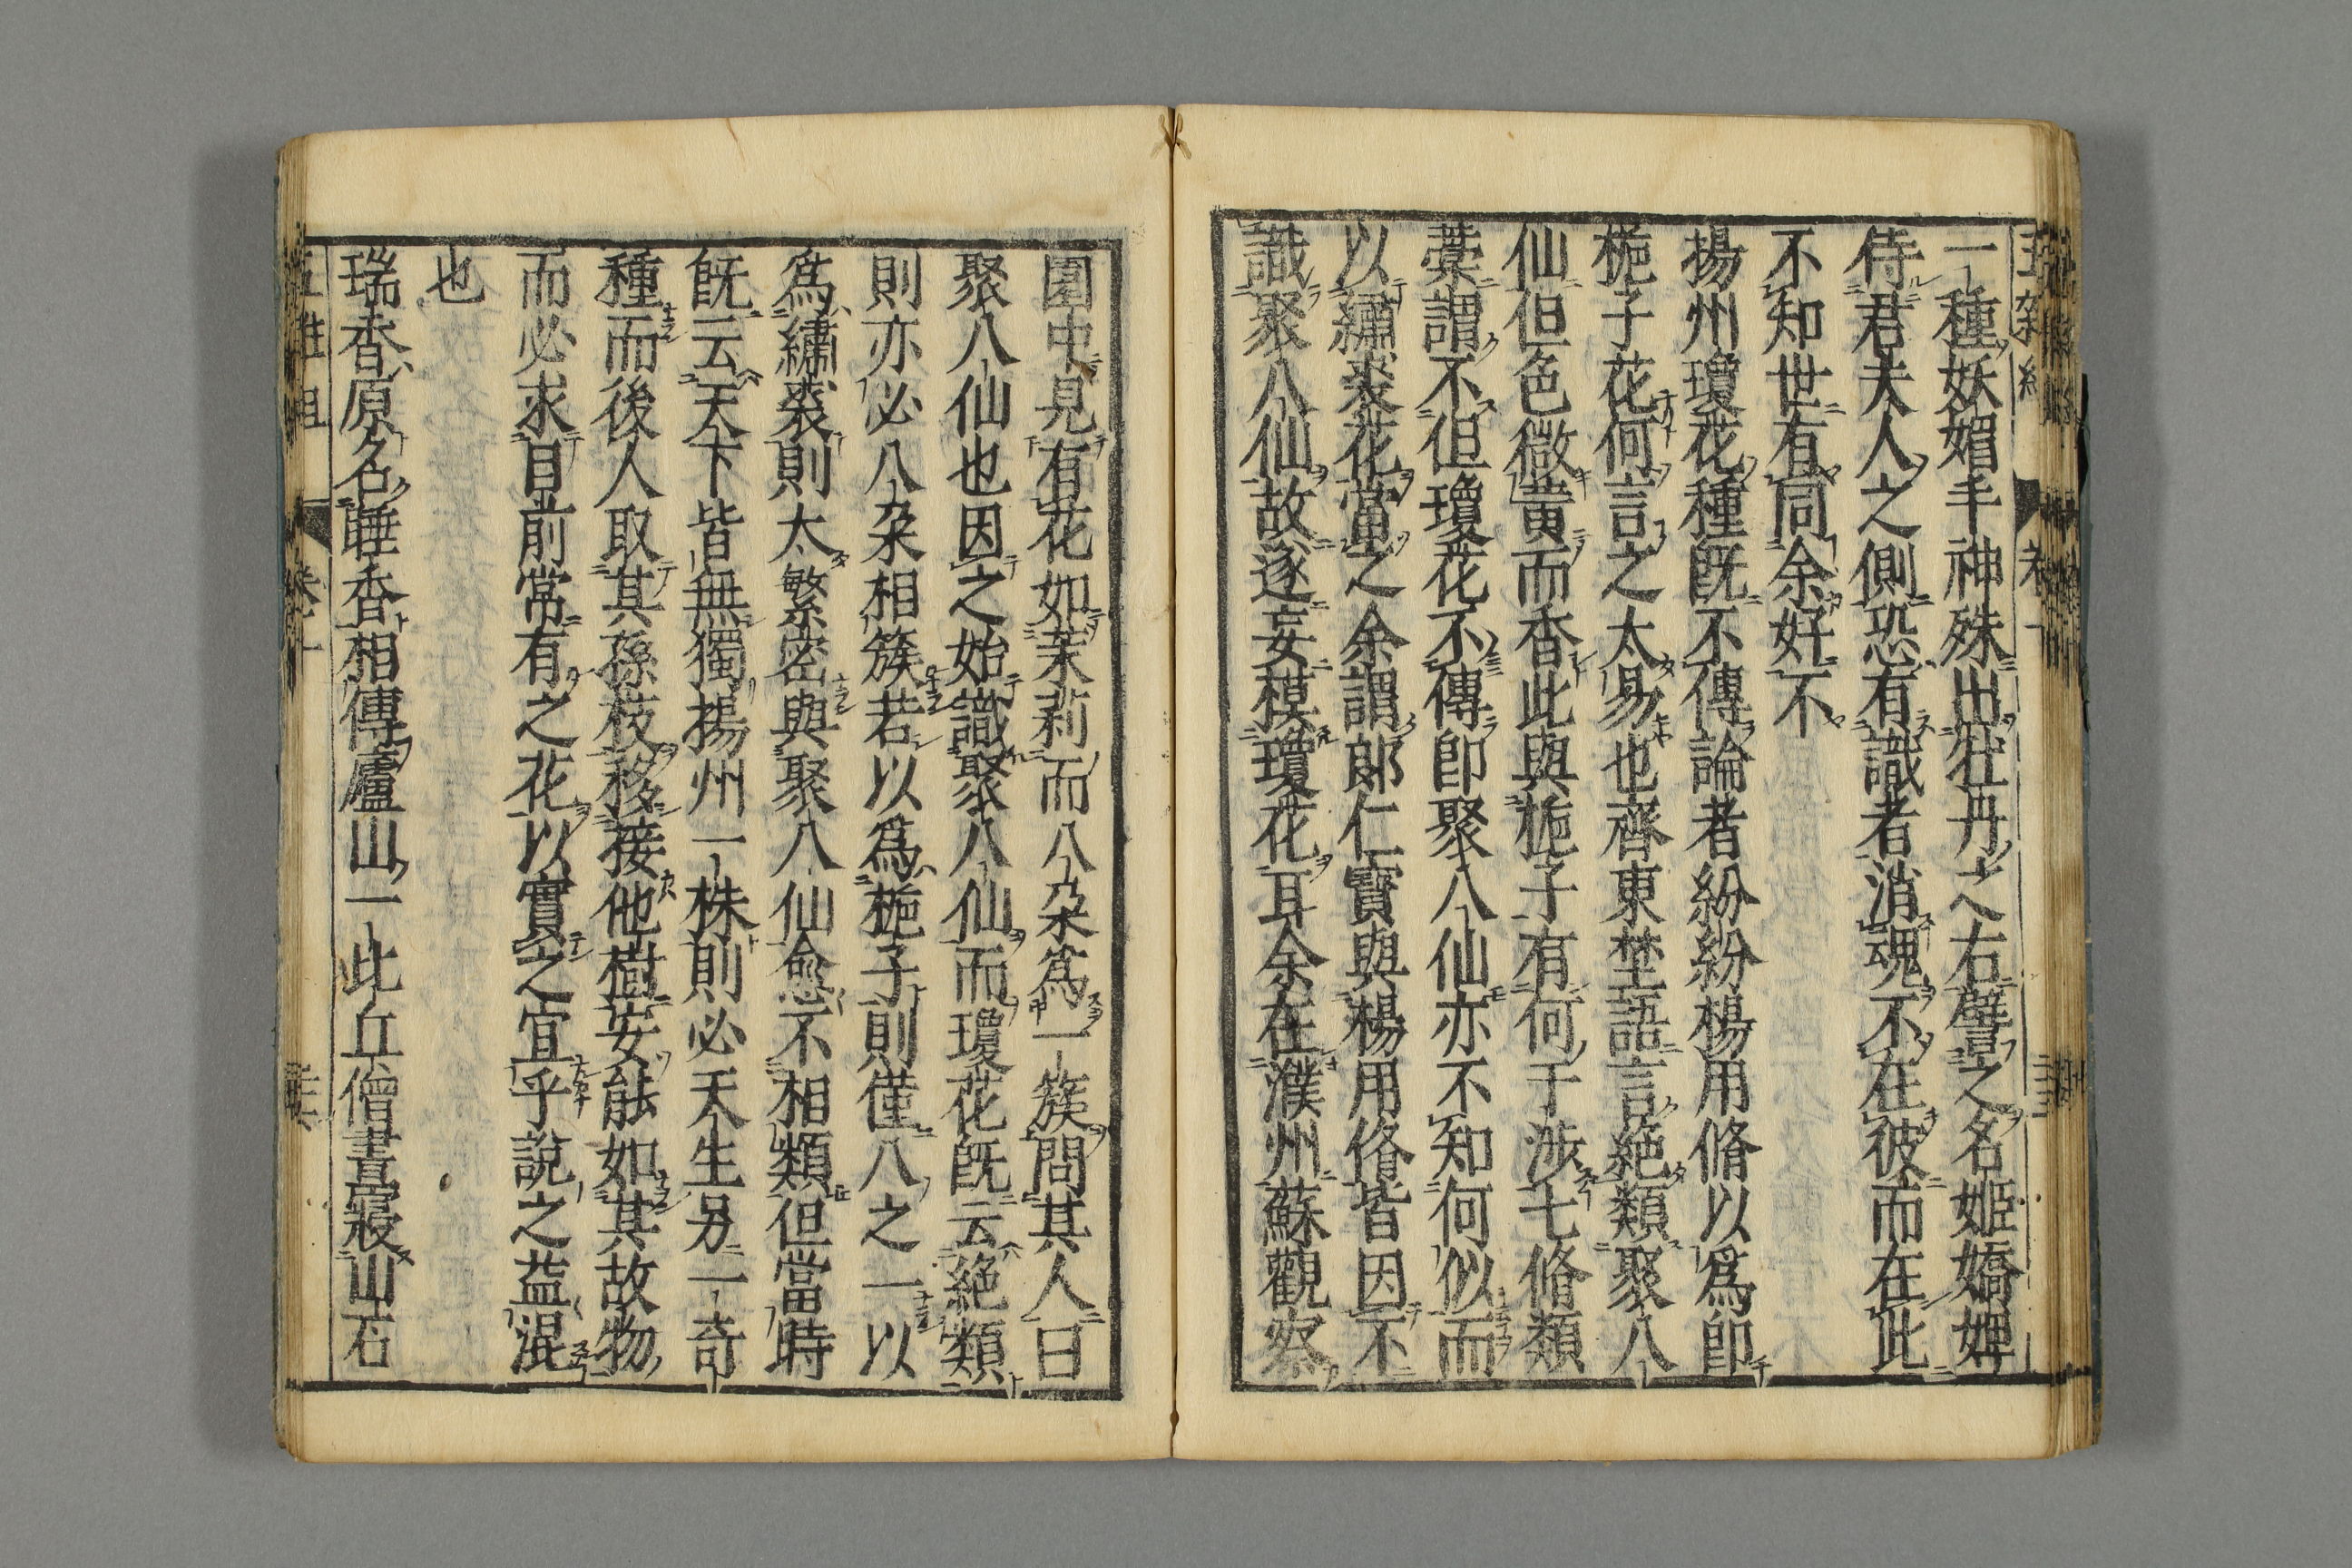 一種妖媚丰神殊出牡丹之右譬之名姬嬌婢
侍君夫人之側恐有識者消魂不在彼而在此
不知世有同余好不
揚州瓊花種既不傳論者紛紛楊用脩以爲卽
梔子花何言之太易也齊東埜語言絕類聚八
仙但色微黃而香此與梔子有何干涉七脩類
藁謂不但瓊花不傳卽聚八仙亦不知何似而
以繡裘花當之余謂郞仁寶與楊用脩皆因不
識聚八仙故遂妄模瓊花耳余在濮州蘇觀察
園中見有花如茉莉而八朶爲一簇問其人曰
聚八仙也因之始識聚八仙而瓊花旣云絕類
則亦必八朶相簇若以爲梔子則僅八之一以
爲繡裘則太繁密與聚八仙愈不相類但當時
旣云天下皆無獨揚州一株則必天生另一奇
種而後人取其孫枝移接他樹安能如其故物
而必求目前常有之花以實之宜乎說之益混
也
瑞香原名睡香相傳廬山一比丘僧晝寢山石